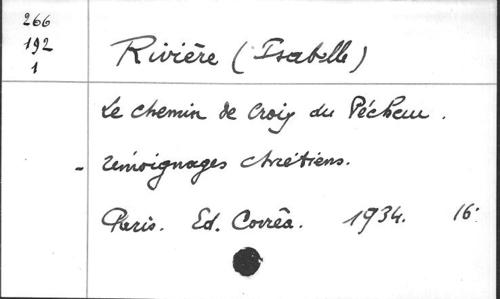 266
192
1
Rivière (Isabelle)
Le chemin de Croix du Pécheur.
- Témoignages chrétiens.
Paris. Ed. Corrêa. 1934. 16°